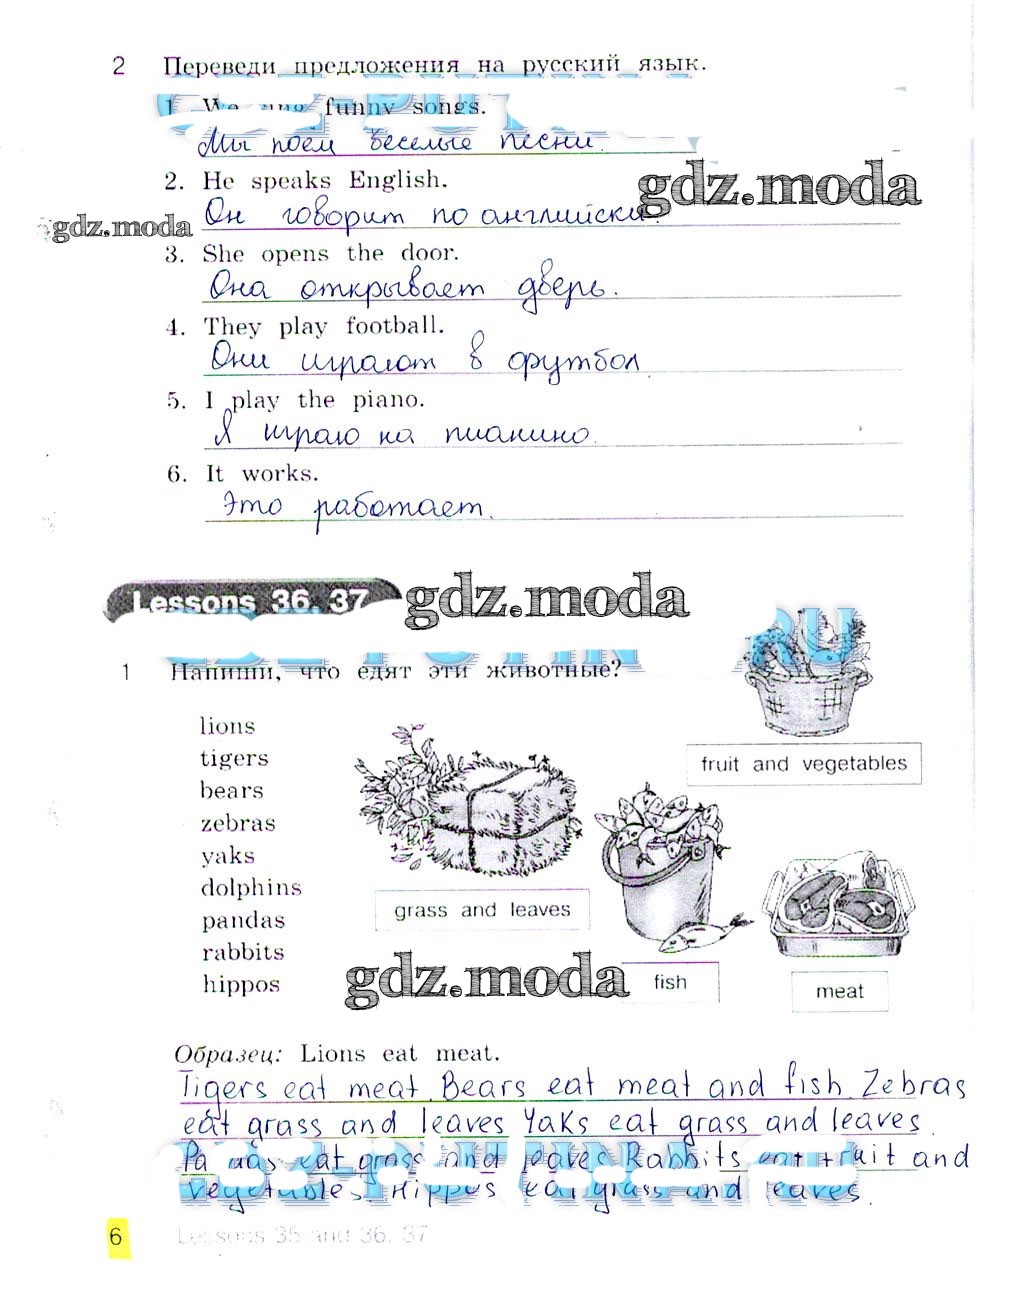 2 Переведи предложения на русский язык.
1. We sing funny songs.
Мы поём веселые песни.
2. He speaks English.
Он говорит по английски.
gdz.moda
gdz.moda
3. She opens the door.
Она открывает дверь.
4. They play football.
Они играют в футбол
5. I play the piano.
Я играю на пианино.
6. It works.
Это работает.
Lessons 36, 37
gdz.moda
1 Напиши, что едят эти животные?
lions
tigers
bears
zebras
yaks
dolphins
pandas
rabbits
hippos
fruit and vegetables
grass and leaves
fish
meat
gdz.moda
Образец: Lions eat meat.
Tigers eat meat. Bears eat meat and fish. Zebras
eat grass and leaves Yaks eat grass and leaves.
Pandas eat grass and leaves Rabbits eat fruit and
vegetables. Hippos eat grass and leaves.
6 Lessons 35 and 36, 37